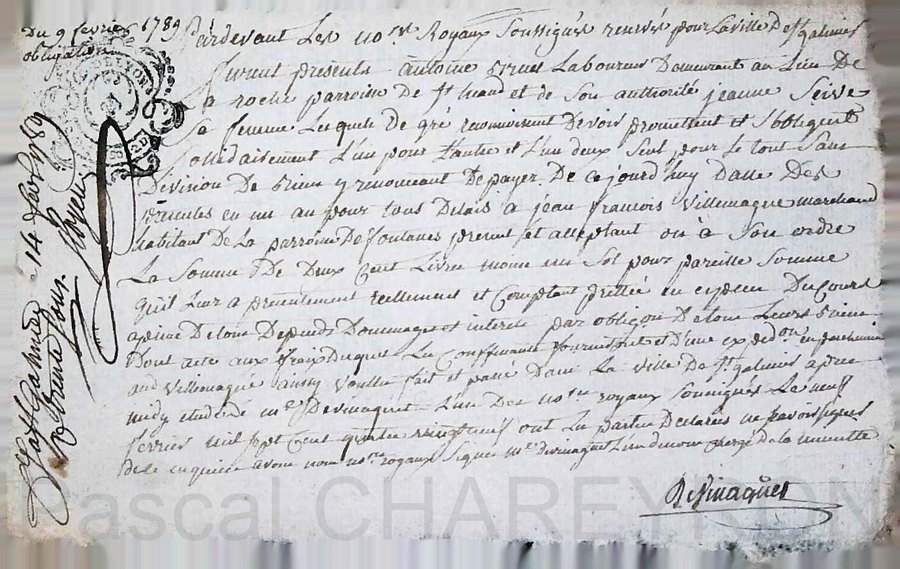 Du 9 fevrier 1789
obligation
Pardevant Les no.res Royaux Soussignés reservés pour La ville de St galmier
furent presents antoine Laboureur Demeurant au Lieu De
La roche parroisse de St et de Son authorité jeanne Serve
Sa femme Lesquels De gré reconnoissent Devoir promettent et S'obligent
Solidairement L'un pour L'autre et L'un deux Seul pour Le tout Sans
Division De biens y renonceant De payer De ce jourd'huy Datte Des
presentes en un an pour tous Delais à jean francois Villemagne marchand
habitant De La parroisse De fontanes present et acceptant ou à Son ordre
La Somme De Deux Cent Livres moins un Sol pour pareille Somme
qu'il Leur a presentement reellement et Comptant prettée en especes Du Cours
apeine De tous Depends Dommages et interets par obligõn De tous Leurs biens
Dont acte aux fraix Duquel Les Confessants fourniront et D'une exped.on en parchemin
aud Villemagne ainsy Voullu fait et passé Dans La ville De St galmier apres
midy etude de m.e Devimaques L'un Des no.res royaux Soussignés Le neuf
fevrier mil Sept Cent quatre vingt neuf ont Les parties Declarés ne Scavoir Signer
de ce enquises avons nous no.res royaux Signé m.e devimaques L'un de nous chargé de la minutte
Devimaques
St Galmier 14 fev. 1789
R. trente sous.
Pascal CHAREYRON